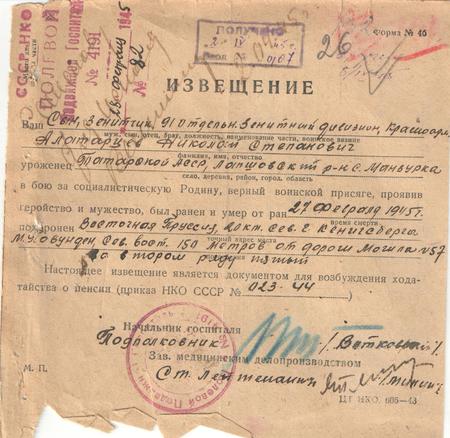 СССР-НКО
ПОЛЕВОЙ
Подвижной Госпиталь
№ 4191
февраля 1945
№ 82
ПОЛУЧЕНО
IV 45
Вход. №
26
Форма № 45
ИЗВЕЩЕНИЕ
Ваш Сын, Зенитчик, 91 отдельн. Зенитный дивизион, Красноарм.
муж, сын, отец, брат, должность, наименование части, воинское звание
Николай Степанович
фамилия, имя, отчество
уроженец Татарской АССР, р-н С. Мансурка
село, деревня, район, город, область
в бою за социалистическую Родину, верный воинской присяге, проявив
геройство и мужество, был ранен и умер от ран 27 Февраля 1945 г.
время смерти
похоронен Восточная Пруссия, 20 кл. Сев. г. Кенигсберга
точный адрес места
Сев. Вост. 150 Метров от дороги Могила №57
во втором ряду пятый
Настоящее извещение является документом для возбуждения хода-
тайства о пенсии (приказ НКО СССР № 023-44
Начальник госпиталя
Подполковник
Зав. медицинским делопроизводством
Ст. Лейтенант
М. П.
ЦТ НКО. 605—43